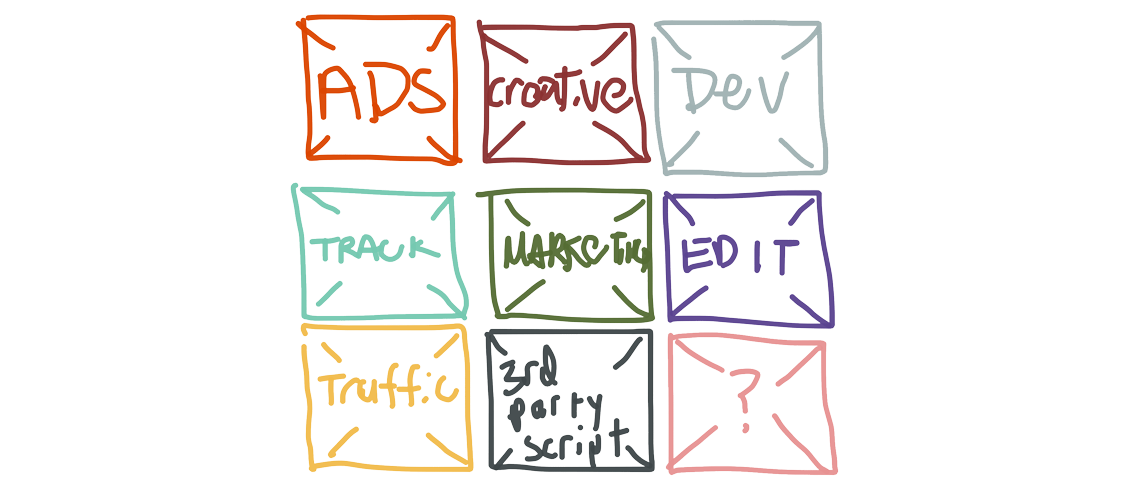 ADS
creative
Dev
TRACK
MARKETING
EDIT
Traffic
3rd
party
script
?